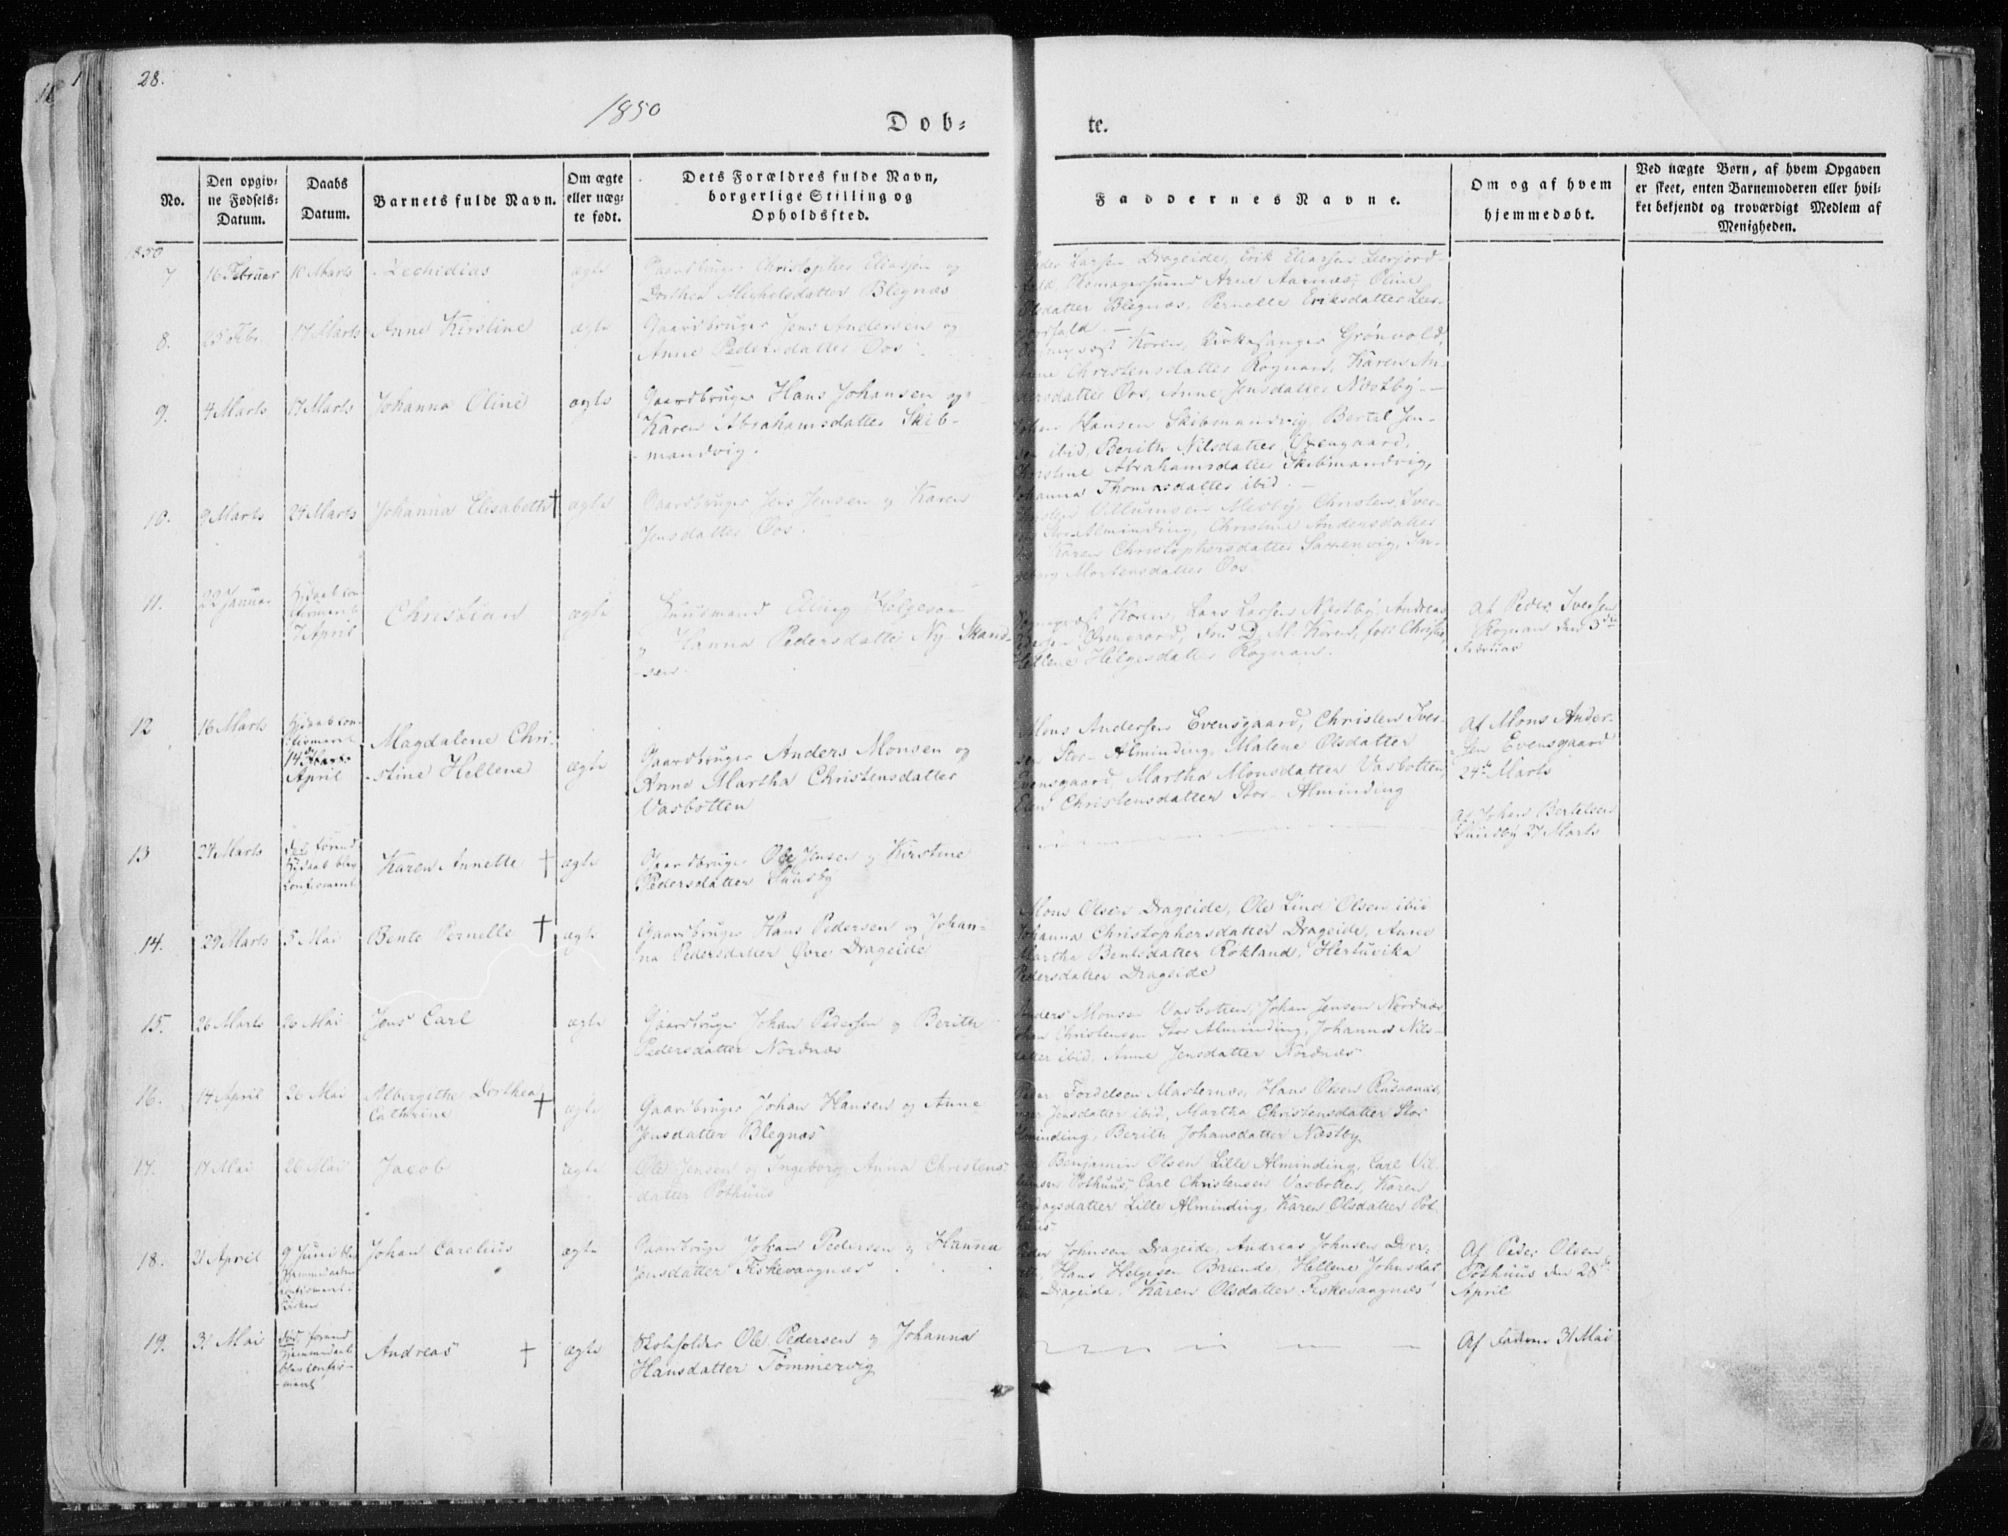 28.
1850
Døb=
te.
No.
Den opgiv=
ne Fødsels=
Datum.
Daabs
Datum.
Barnets fulde Navn.
Om ægte
eller uæg=
te født.
Dets Forældres fulde Navn,
borgerlige Stilling og
Opholdssted.
Faddernes Navne.
Om og af hvem
hjemmedøbt.
Ved uægte Børn, af hvem Opgaven
er skeet, enten Barnemoderen eller hvil=
ket bekjendt og troværdigt Medlem af
Menigheden.
1850
7
16 Februar
10 Marts
Zechidias
ægte
Gaardbruger Christopher Eliassen og
Dorthea Michelsdatter Blegnæs
Peder Larsen Drageide, Erik Eliassen Leerjord-
Romagersund Arne Aarnæs, Oline
Olsdatter Blegnæs, Pernelle Eriksdatter Leer-
jordfald. —
8.
17 Marts
Anne Kirstine
ægte
Gaardbruger Jens Andersen og
Anne Pedersdatter Oos
Koren, Kirkesanger Grønvold,
Christensdatter Rognan, Karen An-
dersdatter Oos, Anne Jensdatter Næstby. —
9.
4 Marts
17 Marts
Johanna Oline
ægte
Gaardbruger Hans Johansen og
Karen Abrahamsdatter Skib-
-mandvig.
Hansen Skibmandvig, Bertel Jen-
sen ibid, Berith Nilsdatter Evensgaard,
Kirstine Abrahamsdatter Skibmandvig,
Johanna Thomasdatter ibid. —
10.
9 Marts
24 Marts
Johanna Elisabeth †
ægte
Gaardbruger Jens Jensen og Karen
Jensdatter Oos.
Villumsen Mestbÿ, Christen Iver-
sen Stor Alminding, Christine Andersdatter
Karen Christophersdatter Saxenvig, In-
geborg Mortensdatter Oos.
11.
22 Januar
Hjdaab con-
firmeret
7 April
Christian
ægte
Huusmand Elling Helgesen
og Hanna Pedersdatter Ny Skand-
-sen.
Koren, Lars Larsen Næstby, Andreas
Larsen Evensgaard, Fru D. M. Koren, født Christie,
Hellene Helgesdatter Rognan.
Af Peder Iversen
Rognan den 3de
Februar
12
16 Marts
Hjdaab con-
firmeret
14de Marts
April
Magdalene Chri-
-stine Hellene
ægte
Gaardbruger Anders Monsen og
Anne Martha Christensdatter
Vasbotten
Mons Andersen Evensgaard, Christen Iver-
sen Stor-Alminding, Malene Olsdatter
Evensgaard, Martha Monsdatter Vasbotten,
Elen Christensdatter Stor-Alminding
Af Mons Ander-
-sen Evensgaard
24de Marts
13
24 Marts
død forend
Hjdaab blev
confirmeret
Karen Annette †
ægte
Gaardbruger Ole Jensen og Kirstine
Pedersdatter Sundby
Af Johan Bertelsen
Sundby 27 Marts
14.
29 Marts
5 Mai
Bente Pernelle †
ægte
Gaardbruger Hans Pedersen og Johan-
na Pedersdatter Øvre Drageide
Mons Olsen Drageide, Ole Lind Olsen ibid
Johanna Christophersdatter Drageide, Anne
Martha Bentsdatter Rokland, Hertuvika
Pedersdatter Drageide
15.
26 Marts
26 Mai
Jens Carl
ægte
Gaardbruger Johan Pedersen og Berith
Pedersdatter Nordnæs
Anders Monsen Vasbotten, Johan Jensen Nordnæs
Johan Christensen Stor Alminding, Johanna Nils-
datter ibid, Anne Jensdatter Nordnæs
16.
14 April
26 Mai
Albergitte Dorthea
Cathrine †
ægte
Gaardbruger Johan Hansen og Anne
Jensdatter Blegnæs
Peder Fordelsen Masternæs, Hans Olsen Rusaanæs,
Jensdatter ibid, Martha Christensdatter Stor
Alminding, Berith Johansdatter Næstby
17.
17 Mai
26 Mai
Jacob
ægte
Ole Jensen og Ingeborg Anna Christens-
datter Pothuus
Benjamin Olsen Lille Alminding, Carl Vil-
lumsen Pothuus, Carl Christensen Vasbotten, Karen
datter Lille Alminding, Karen Olsdatter Pot
huus
18.
21 April
9 Juni blev
Hjemmedaaben
confirmeret i
Kirken
Johan Carelius
ægte
Gaardbruger Johan Pedersen og Hanna
Jensdatter Fiskevaagnæs
Peder Johnsen Drageide, Andreas Johnsen Dver-
Hans Helgesen Brænde, Hellene Johnsdat
Drageide, Karen Olsdatter Fiskevaagnæs
Af Peder Olsen
Pothuus den 28de
April
19.
31 Mai
død forend
Hjemmedaab
blev confir-
-meret
Andreas †
ægte
Skoleholder Ole Pedersen og Johanna
Hansdatter Tømmervig
Af Faderen 31 Mai